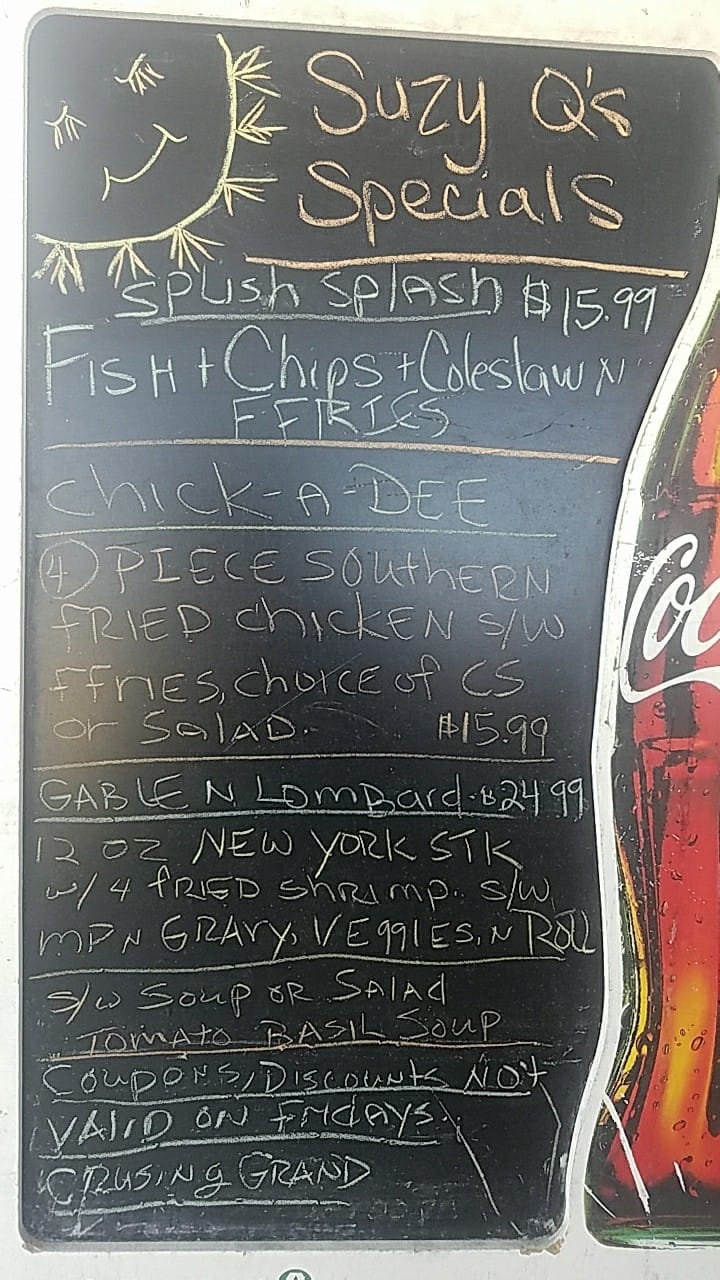 Suzy Q's
Specials
SPLISH SPLASH $15.99
FISH + Chips + Coleslaw N
FFRIES
Chick-A-DEE
④ PIECE SOUthERN
FRIED ChICKEN S/W
FFries, choice of CS
or SALAD. $15.99
GABLE N LOmBard-$24.99
12 OZ NEW YORK STK
w/4 fRIED shRImp. S/W
MP N GRAVY, VEggIES, N Roll
S/W SOUP OR SALAd
TOMATO BASIL SOUP
COUPONS/DISCOUNtS NOt
VALID ON FRIDAYS.
CRUSINg GRAND
Coc